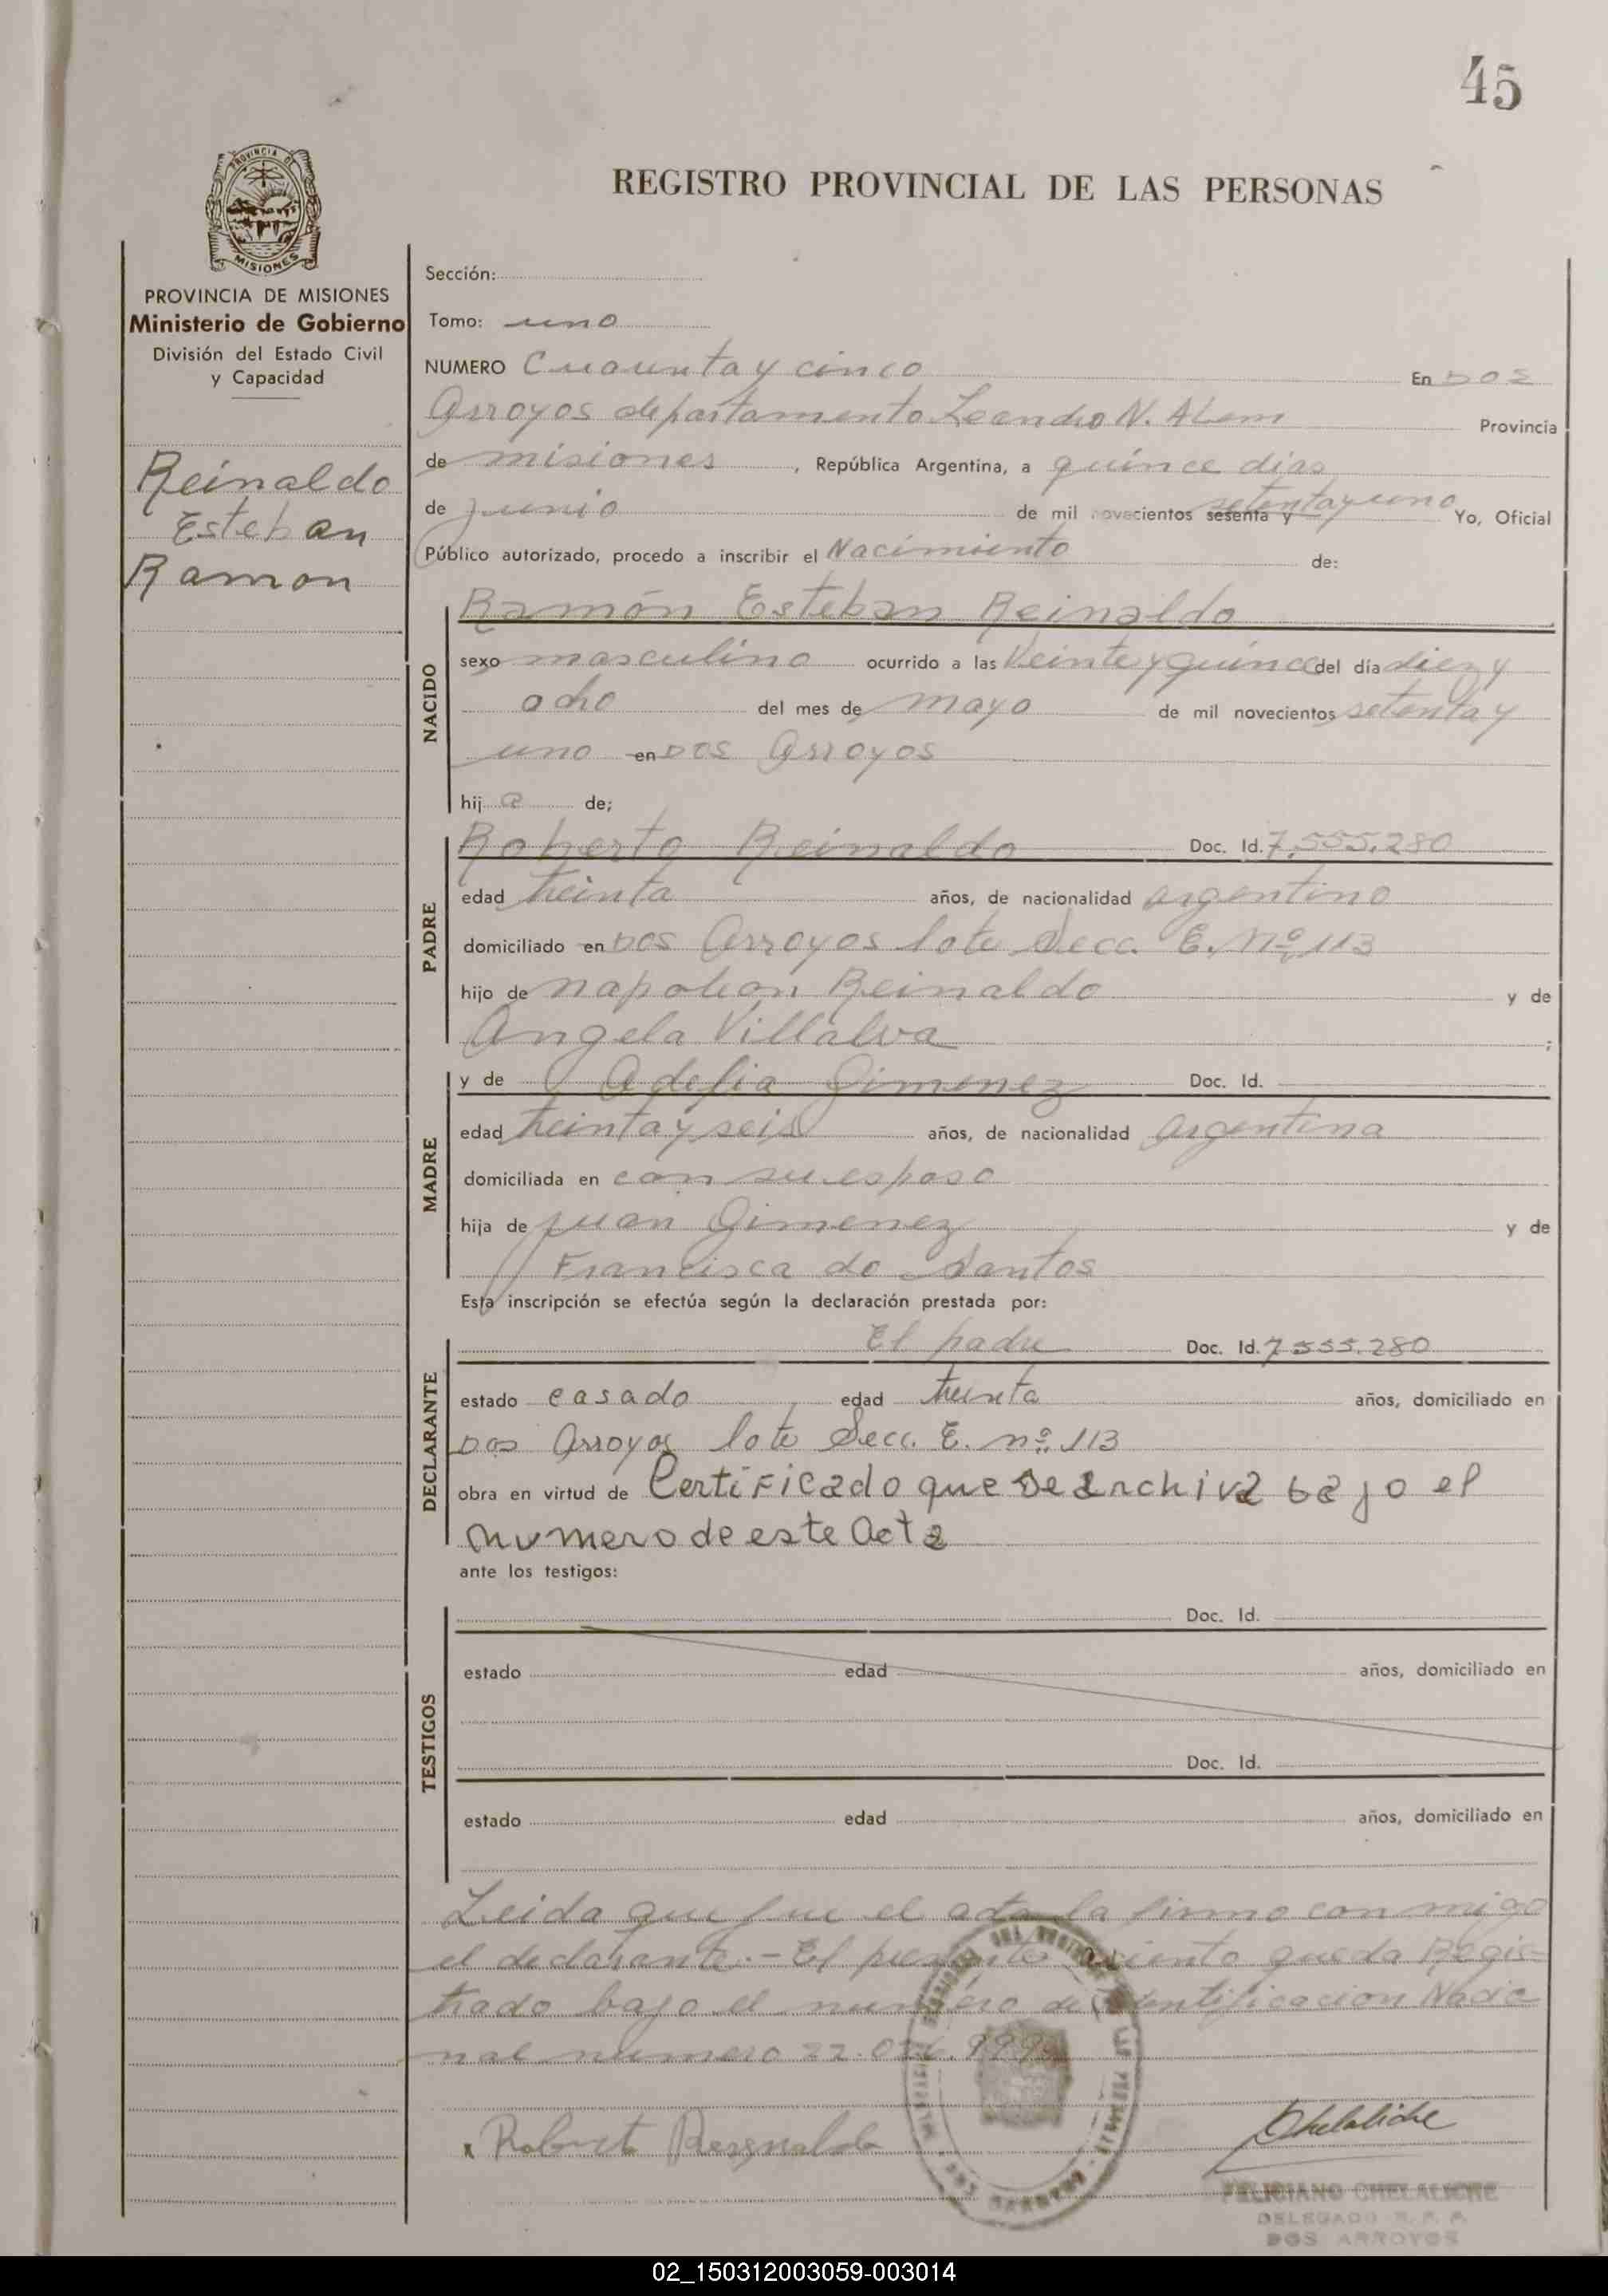 45
PROVINCIA DE
MISIONES
REGISTRO PROVINCIAL DE LAS PERSONAS
PROVINCIA DE MISIONES
Ministerio de Gobierno
División del Estado Civil
y Capacidad
Reinaldo
Esteban
Ramon
Sección:
Tomo: uno
NUMERO Cuarenta y cinco En DOS
Arroyos departamento Leandro N. Alem Provincia
de misiones, República Argentina, a quince dias
de junio de mil novecientos sesenta y setenta y uno Yo, Oficial
Público autorizado, procedo a inscribir el Nacimiento de:
NACIDO
Ramón Esteban Reinaldo
sexo masculino ocurrido a las Veinte y quince del día diez y
ocho del mes de mayo de mil novecientos setenta y
uno en DOS Arroyos
hij o de;
PADRE
Roberto Reinaldo Doc. Id. 7.555.280
edad treinta años, de nacionalidad argentino
domiciliado en DOS Arroyos lote Secc. E. Nº 113
hijo de napoleón Reinaldo y de
Angela Villalva;
MADRE
y de Adelia Gimenez Doc. Id.
edad treinta y seis años, de nacionalidad argentina
domiciliada en con su esposo
hija de juan Gimenez y de
Francisca do Santos
Esta inscripción se efectúa según la declaración prestada por:
DECLARANTE
El padre Doc. Id. 7.555.280
estado casado edad treinta años, domiciliado en
Dos Arroyos lote Secc. E. nº 113
obra en virtud de Certificado que se archiva bajo el
numero de este Acta
ante los testigos:
TESTIGOS
Doc. Id.
estado edad años, domiciliado en
Doc. Id.
estado edad años, domiciliado en
Leida que fue el acta la firma con migo
el declarante.- El presente asiento queda Regis-
trado bajo el numero de Identificacion Nacio
nal numero 22.026.
Chelaliche
FELICIANO CHELALICHE
DELEGADO R. P. P.
DOS ARROYOS
02_150312003059-003014